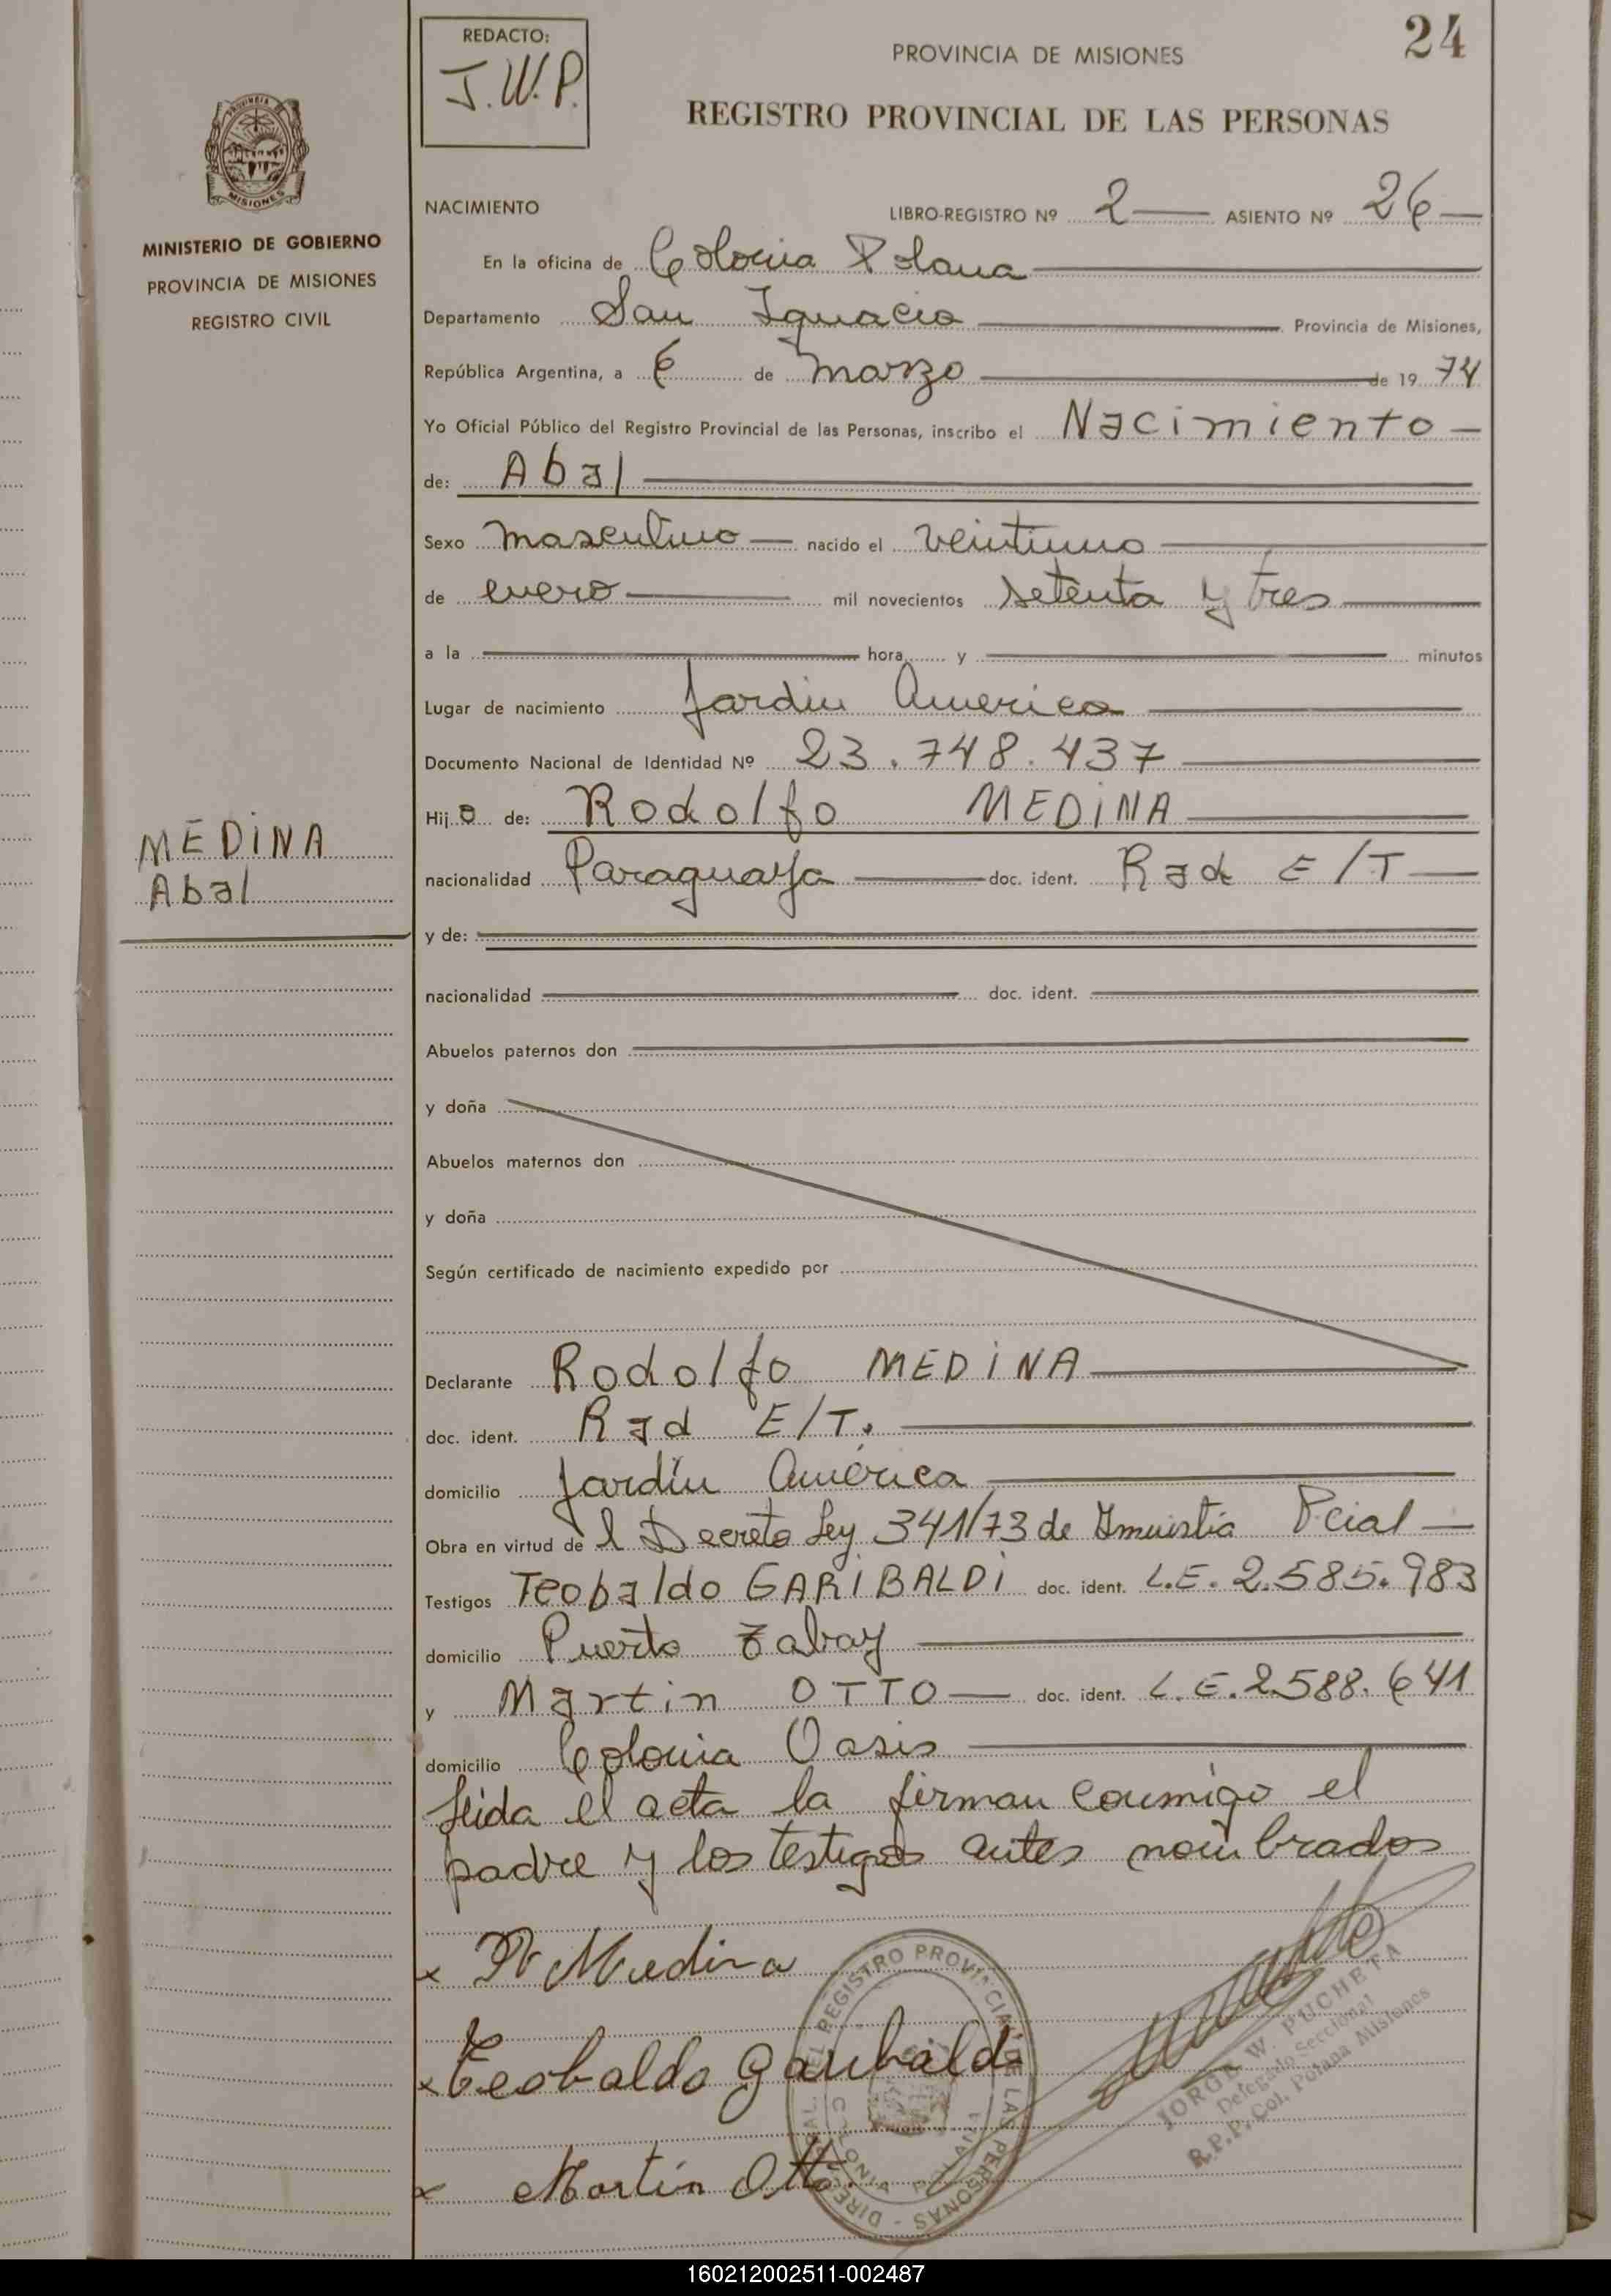 24
REDACTO:
J.W.P.
PROVINCIA DE MISIONES
REGISTRO PROVINCIAL DE LAS PERSONAS
PROVINCIA DE
MISIONES
MINISTERIO DE GOBIERNO
PROVINCIA DE MISIONES
REGISTRO CIVIL
NACIMIENTO LIBRO-REGISTRO Nº 2 ASIENTO Nº 26
En la oficina de Colonia Polana
Departamento San Ignacio Provincia de Misiones,
República Argentina, a 6 de marzo de 1974
Yo Oficial Público del Registro Provincial de las Personas, inscribo el Nacimiento
de: Abal
Sexo masculino nacido el veintiuno
de enero mil novecientos setenta y tres
a la hora y minutos
Lugar de nacimiento Jardin America
Documento Nacional de Identidad Nº 23.748.437
Hijo de: Rodolfo MEDINA
MEDINA
Abal
nacionalidad Paraguaya doc. ident. Rad E/T
y de:
nacionalidad doc. ident.
Abuelos paternos don
y doña
Abuelos maternos don
y doña
Según certificado de nacimiento expedido por
Declarante Rodolfo MEDINA
doc. ident. Rad E/T.
domicilio Jardín América
Obra en virtud del Decreto Ley 341/73 de Amnistia Pcial
Testigos Teobaldo GARIBALDI doc. ident. L.E. 2.585.983
domicilio Puerto Tabay
y Martin OTTO doc. ident. L.E. 2.588.641
domicilio Colonia Oasis
Leida el acta la firman conmigo el
padre y los testigos antes nombrados
x R Medina
x Teobaldo Garibaldi
x Martín Otto
DIRE AL REGISTRO PROVINCIAL DE LAS PERSONAS
COLONIA
JORGE W. PUCHETA
Delegado Seccional
R.P.P. Col. Polana Misiones
160212002511-002487